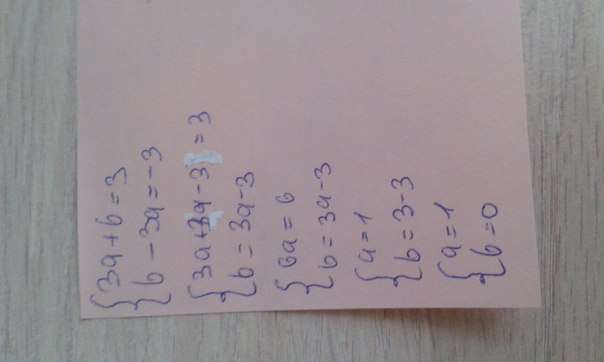 {3a+b=3
{b-3a=-3
{3a+3a-3=3
{b=3a-3
{6a=6
{b=3a-3
{a=1
{b=3-3
{a=1
{b=0